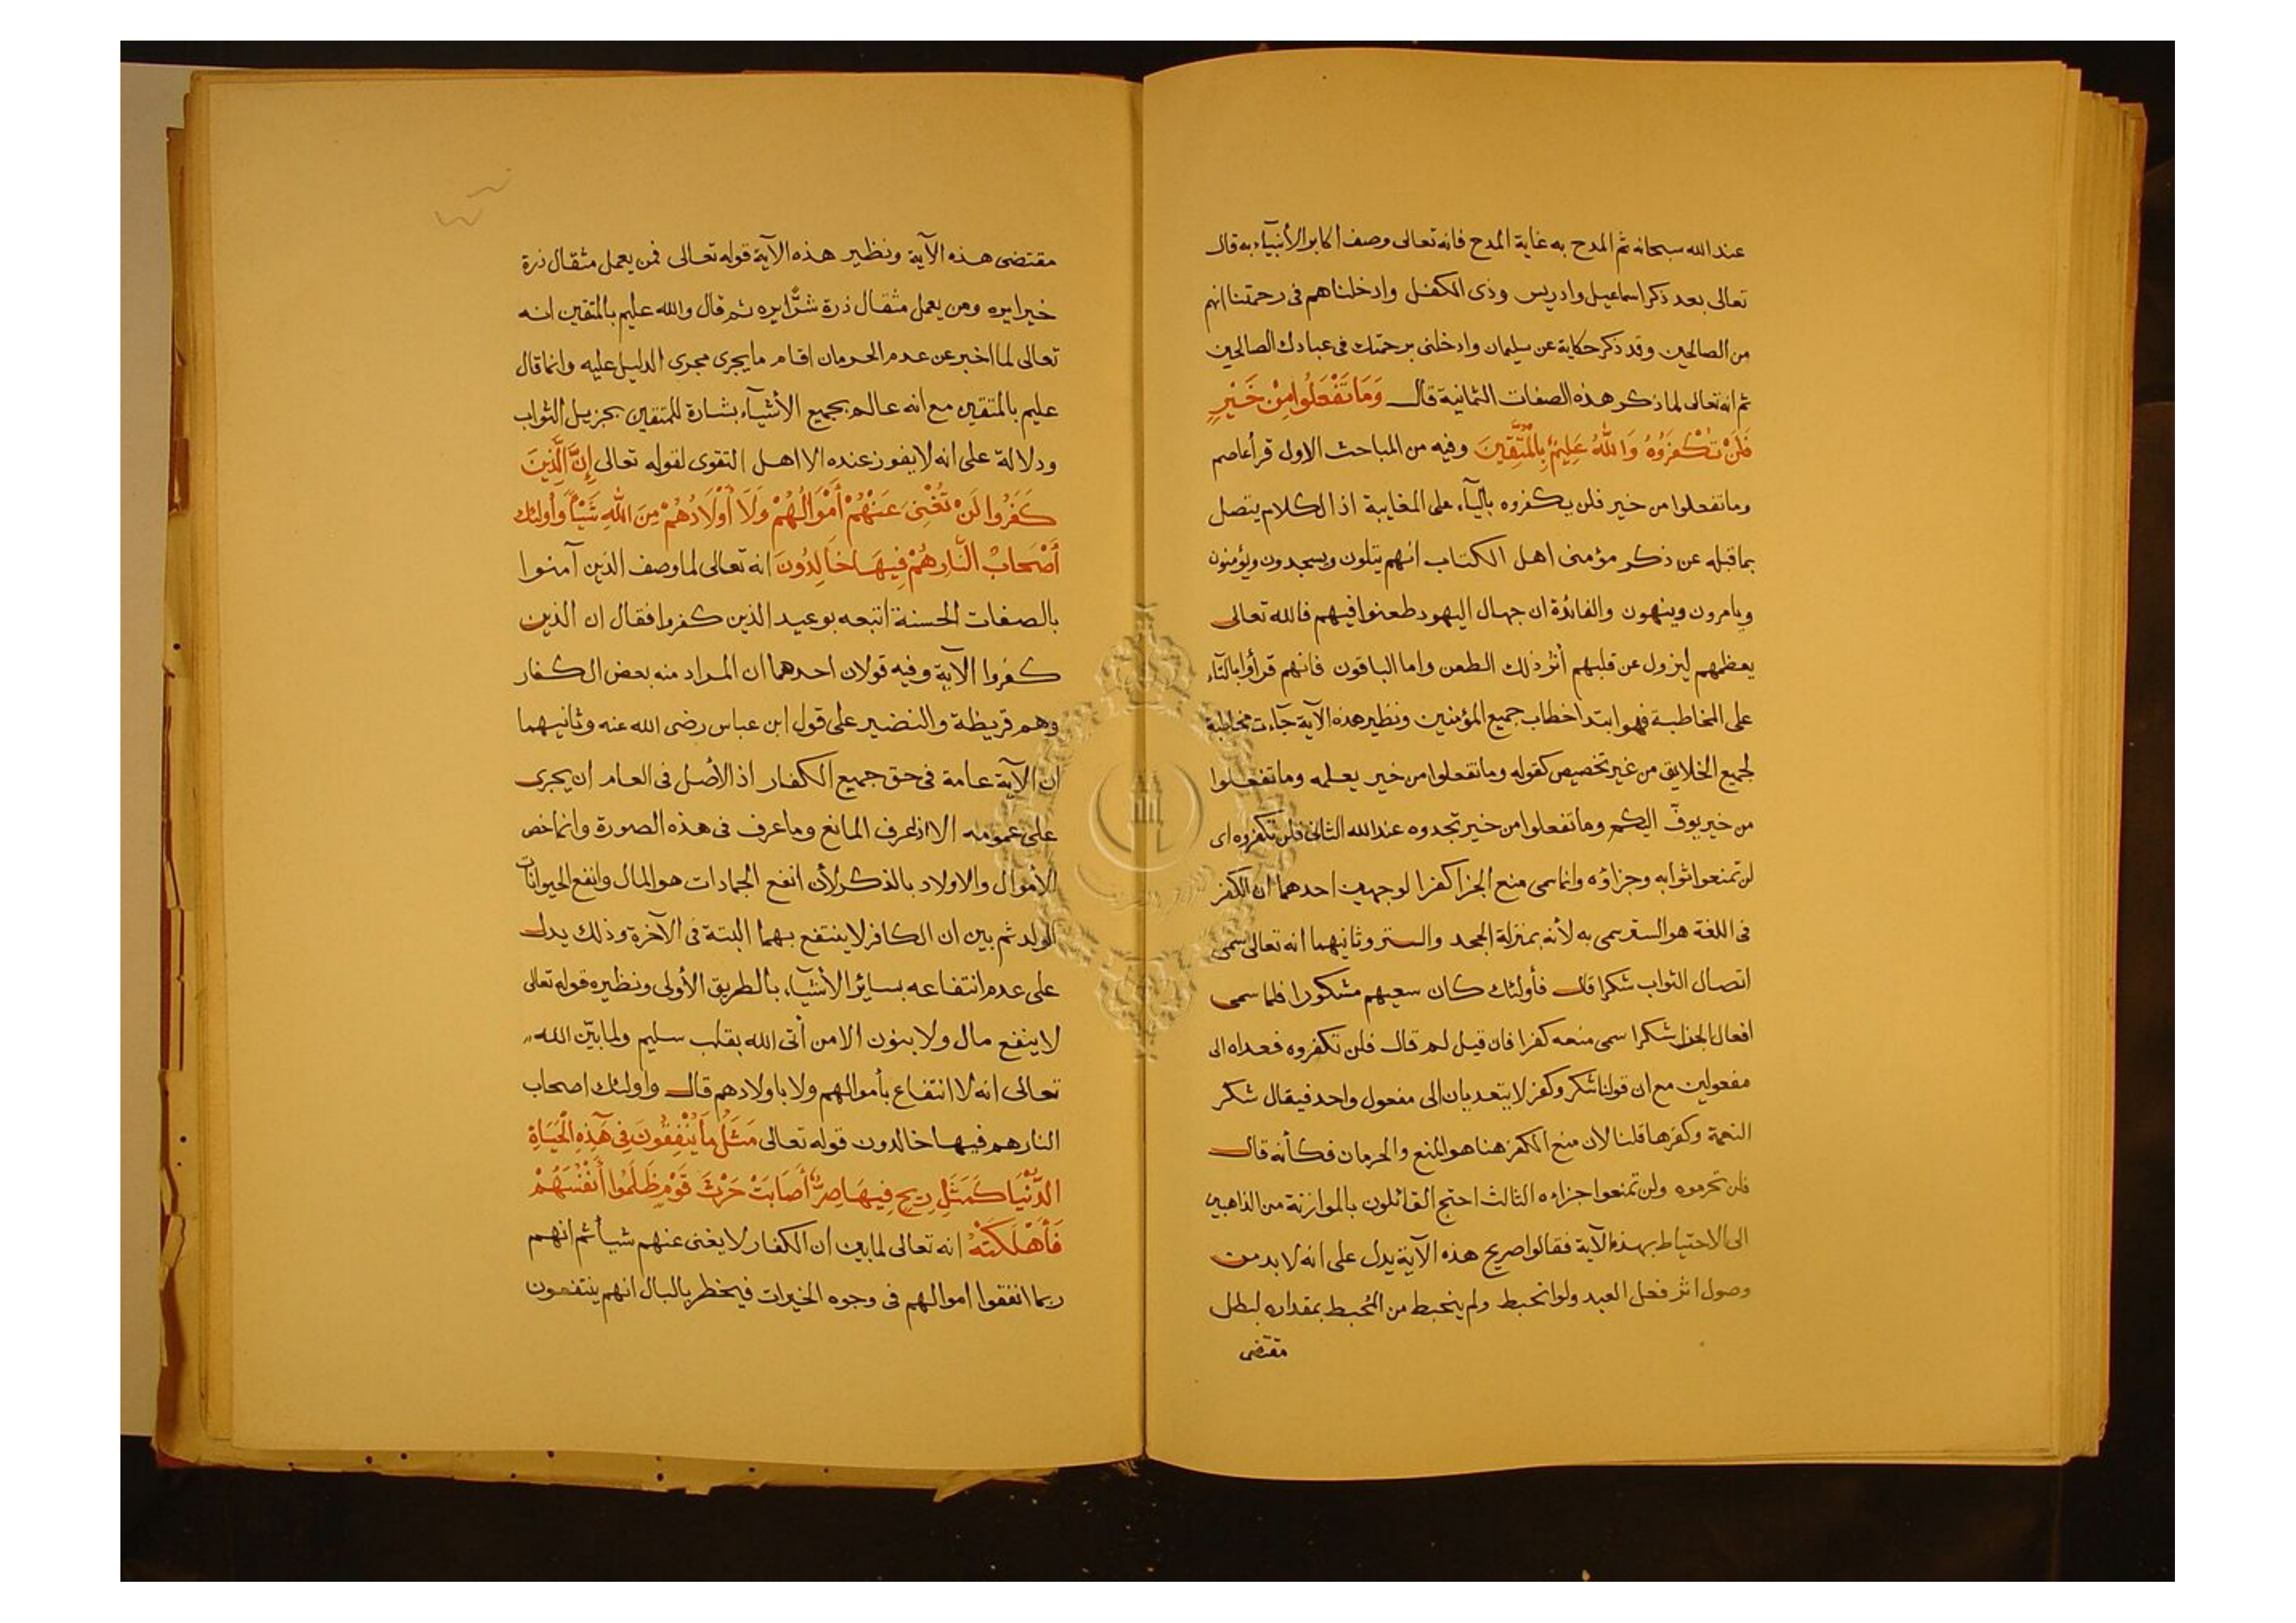 عند الله سبحانه ثم المدح به غاية المدح فانه تعالى وصف اكابر الأنبيآء به قال
تعالى بعد ذكر اسماعيل وادريس وذى الكفل وادخلناهم فى رحمتنا انهم
من الصالحين وقد ذكر حكاية عن سليمان وادخلنى برحمتك فى عبادك الصالحين
ثم انه تعالى لما ذكر هذه الصفات الثمانية قال وَمَا تَفْعَلُوا مِنْ خَيْرٍ
فَلَنْ تُكْفَرُوهُ وَاللهُ عَلِيمٌ بِالْمُتَّقِينَ وفيه من المباحث الاول قرأ عاصم
وما تفعلوا من خير فلن يكفروه باليآء على المغايبة اذ الكلام يتصل
بما قبله عن ذكر مؤمنى اهل الكتاب انهم يتلون ويسجدون ويؤمنون
ويامرون وينهون والفائدة ان جهال اليهود طعنوا فيهم فالله تعالى
يعظمهم ليزول عن قلبهم أثر ذلك الطعن واما الباقون فانهم قرأوا بالتآء
على المخاطبة فهو ابتدا خطاب جميع المؤمنين ونظير هذه الآية جآءت مخاطبة
لجميع الخلايق من غير تخصيص كقوله وما تفعلوا من خير يعلمه وما تفعلوا
من خير يوفّ اليكم وما تفعلوا من خير تجدوه عند الله الثانى فلن تكفروه اى
لن تمنعوا ثوابه وجزاؤه وانما سمى منع الجزا كفرا لوجهين احدهما ان الكفر
فى اللغة هو الستر سمى به لأنه بمنزلة الجحد والستر وثانيهما انه تعالى سمى
اتصال الثواب شكرا قال فأولئك كان سعيهم مشكورا فلما سمى
افعال الجزا شكرا سمى منعه كفرا فان قيل لم قال فلن تكفروه فعداه الى
مفعولين مع ان قولنا شكر وكفر لا يتعديان الى مفعول واحد فيقال شكر
النعمة وكفرها قلنا لان منع الكفر هنا هو المنع والحرمان فكأنه قال
فلن تحرموه ولن تمنعوا جزاءه الثالث احتج القائلون بالموازنة من الذاهبين
الى الاحتياط بهذه الآية فقالوا صريح هذه الآية يدل على انه لا بد من
وصول اثر فعل العبد ولو انحبط ولم ينحبط من المُحبط بمقداره لبطل
مقتضى
مقتضى هذه الآية ونظير هذه الآية قوله تعالى فمن يعمل مثقال ذرة
خيرا يره ومن يعمل مثقال ذرة شرًّا يره ثم قال والله عليم بالمتقين انه
تعالى لما اخبر عن عدم الحرمان اقام ما يجرى مجرى الدليل عليه وانما قال
عليم بالمتقين مع انه عالم بجميع الأشيآء بشارة للمتقين بجزيل الثواب
ودلالة على انه لا يفوز عنده الا اهل التقوى لقوله تعالى إِنَّ الَّذِينَ
كَفَرُوا لَنْ تُغْنِىَ عَنْهُمْ أَمْوَالُهُمْ وَلَا أَوْلَادُهُمْ مِنَ اللهِ شَيْأً وَأُولئِكَ
أَصْحَابُ النَّارِ هُمْ فِيهَا خَالِدُونَ انه تعالى لما وصف الذين آمنوا
بالصفات الحسنة اتبعه بوعيد الذين كفروا فقال ان الذين
كفروا الآية وفيه قولان احدهما ان المراد منه بعض الكفار
وهم قريظة والنضير على قول ابن عباس رضى الله عنه وثانيهما
ان الآية عامة فى حق جميع الكفار اذ الأصل فى العام ان يجرى
على عمومه الا اذا عرف المانع وما عرف فى هذه الصورة وانما خص
الاموال والاولاد بالذكر لأن انفع الجمادات هو المال وانفع الحيوانات
الولد ثم بين ان الكافر لا ينتفع بهما البتة فى الآخرة وذلك يدل
على عدم انتفاعه بسائر الأشيآء بالطريق الأولى ونظيره قوله تعالى
لا ينفع مال ولا بنون الا من أتى الله بقلب سليم ولما بيّن الله
تعالى انه لا انتفاع بأموالهم ولا باولادهم قال واولئك اصحاب
النار هم فيها خالدون قوله تعالى مَثَلُ مَا يُنْفِقُونَ فِى هَذِهِ الْحَيَاةِ
الدُّنْيَا كَمَثَلِ رِيحٍ فِيهَا صِرٌّ أَصَابَتْ حَرْثَ قَوْمٍ ظَلَمُوا أَنْفُسَهُمْ
فَأَهْلَكَتْهُ انه تعالى لما بين ان الكفار لا يغنى عنهم شيأ ثم انهم
ربما انفقوا اموالهم فى وجوه الخيرات فيخطر بالبال انهم ينتفعون